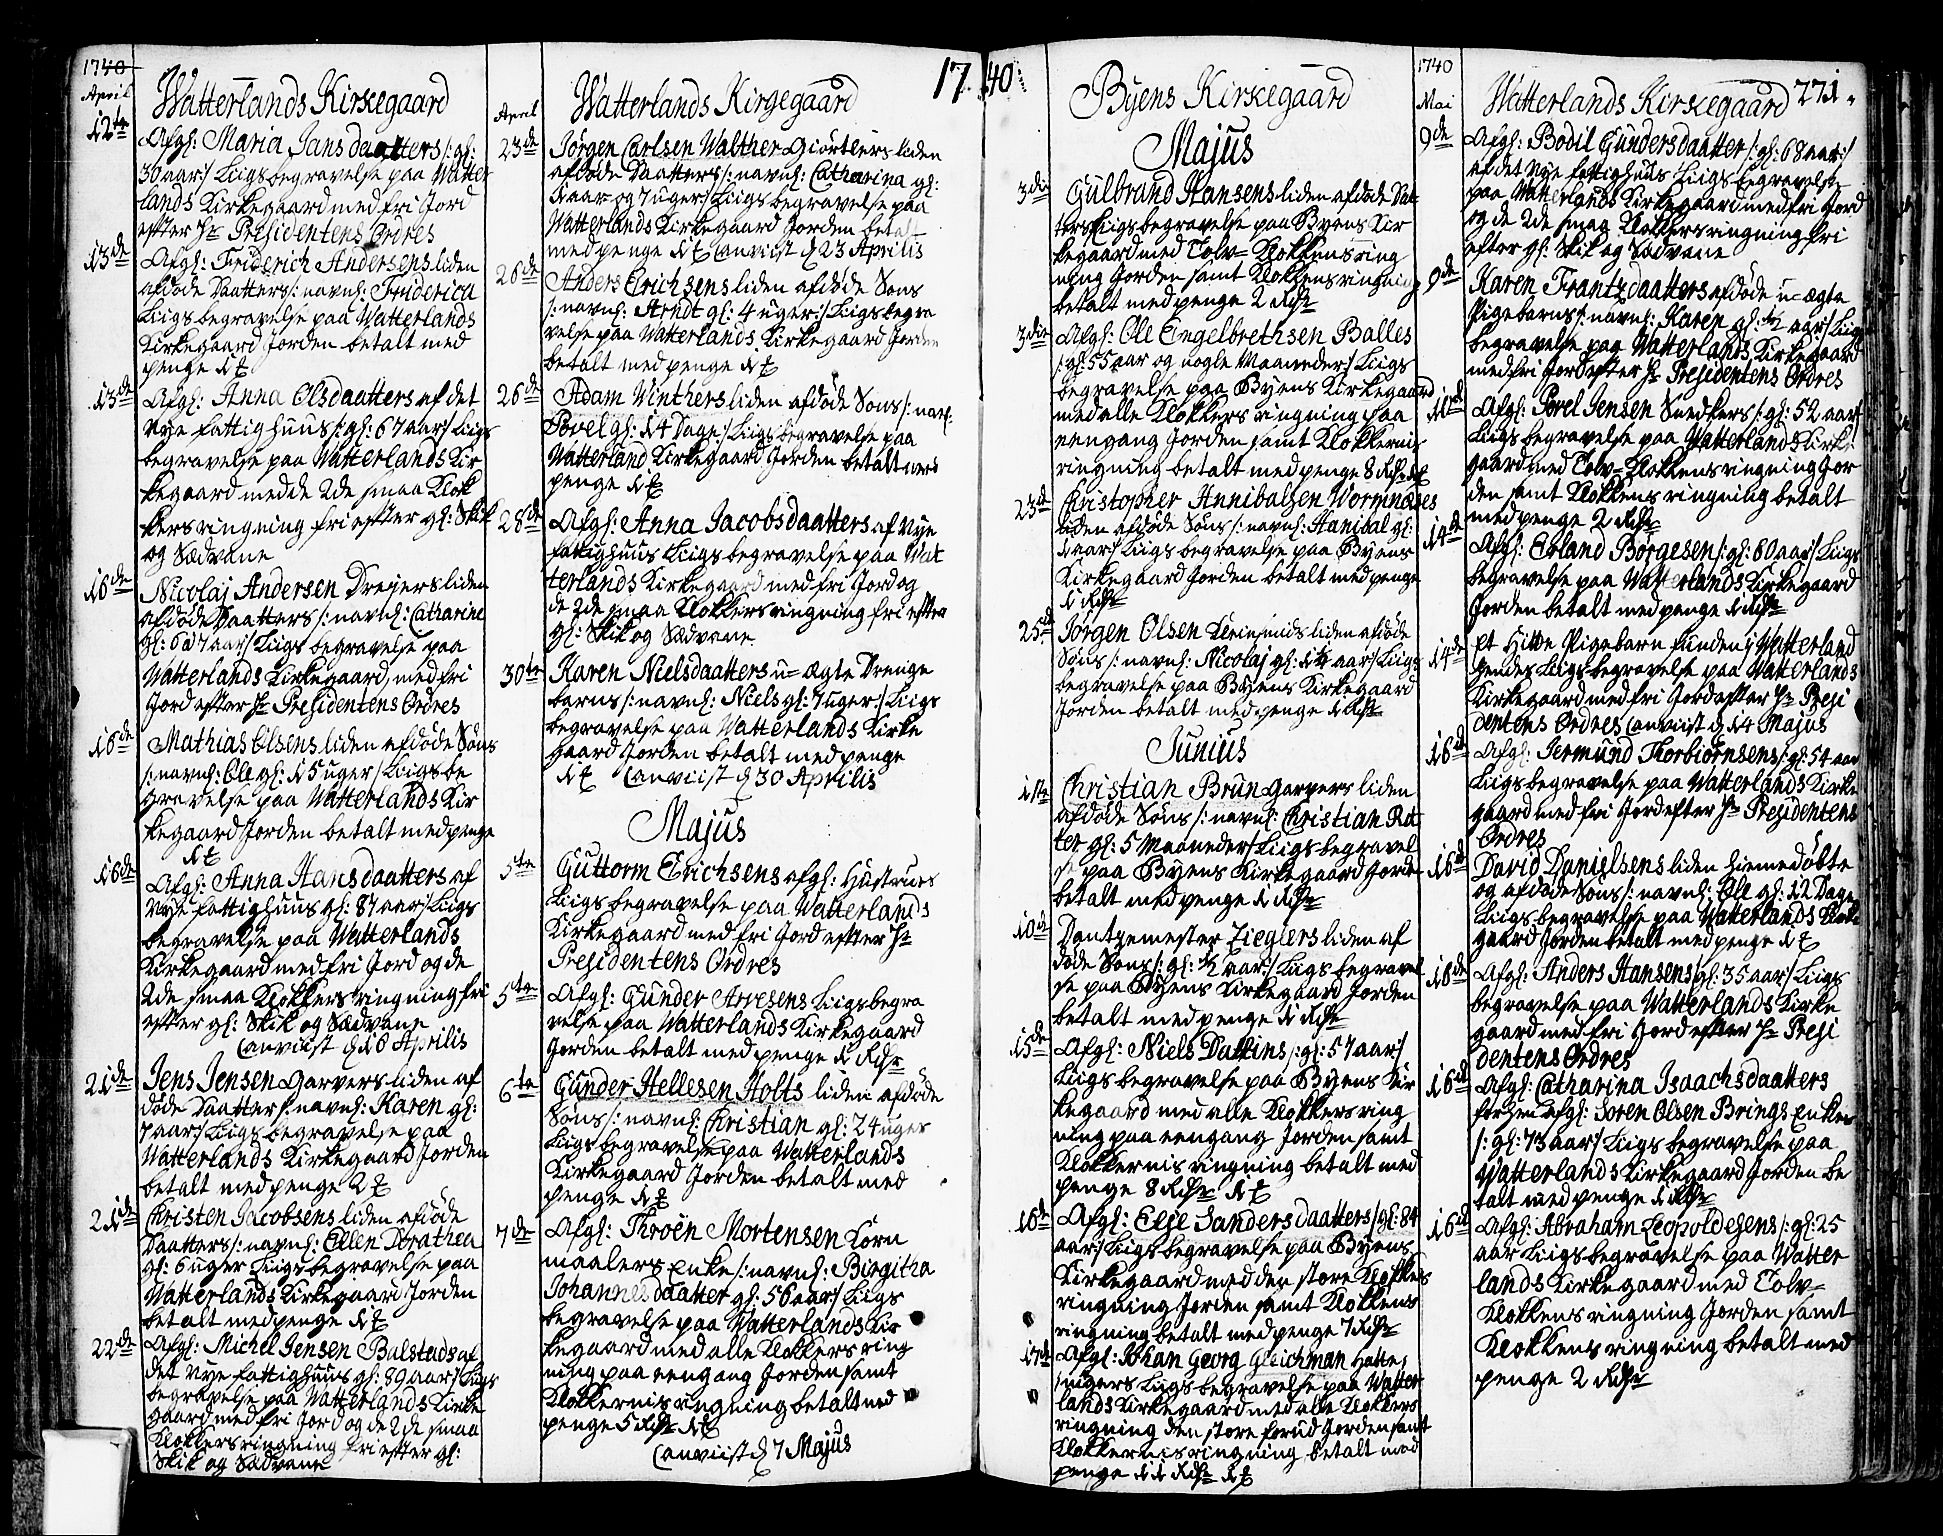 1740
April
Watterlands Kirkegaard
12te
Afgl: Maria Jansdaatters /: gl:
30 aar :/ Liigs begravelse paa Watter
lands Kirkegaard med fri Jord
efter Hr Presidentens Ordres
13de
Afgl: Friderich Andersens liden
afdøde Daatters /: navnl: Friderica
Liigs begravelse paa Watterlands
Kirkegaard Jorden betalt med
penge
13de
Afgl: Anna Olsdaatters af det
Nye fattighuus /: gl: 67 aar :/ Liigs
begravelse paa Watterlands Kir
kegaard med de 2de smaa Klok
kers ringning fri efter gl: Skik
og Sædvane
16de
Nicolaj Andersen Dreyers liden
afdøde Daatters /: navnl: Catharine
gl: 6 a 7 aar :/ Liigs begravelse paa
Watterlands Kirkegaard med fri
Jord efter Hr Presidentens Ordres
16de
Mathias Olsens liden afdøde Søns
/: navnl: Ole gl: 15 uger :/ Liigs be
gravelse paa Watterlands Kir
kegaard Jorden betalt med penge
16de
Afgl: Anna Hansdaatters af
Nye fattighuus gl: 87 aar :/ Liigs
begravelse paa Watterlands
Kirkegaard med fri Jord og de
2de smaa Klokkers ringning fri
efter gl: Skik og Sædvane
anviist d 16 Aprilis
21de
Jens Jensen Garvers liden af
døde Daatter /: navnl: Karen gl:
7 aar :/ Liigs begravelse paa
Watterlands Kirkegaard Jorden
betalt med penge 2
21de
Christen Jacobsens liden afdøde
Daatters /: navnl: Ellen Dorathea
gl: 6 uger Liigs begravelse paa
Watterlands Kirkegaard Jorden
betalt med penge
22de
Afgl: Michel Jensen Bulstads af
det Nye fattighuus gl: 89 aar :/ Liigs
begravelse paa Watterlands Kirke
gaard med fri Jord og de 2de smaa
Klokkers ringning fri efter gl:
Skik og Sædvane
April
Watterlands Kirgegaard
23de
Jørgen Carlsen Walther Giørtlers liden
afdøde Daatters /: navnl: Catharina gl:
1 aar og 7 uger :/ Liigs begravelse paa
Watterlands Kirkegaard Jorden betalt
med penge anviist d 23 Aprilis
26de
Anders Erichsens liden afdøde Søns
/: navnl: Arndt gl: 4 uger :/ Liigs begra
velse paa Watterlands Kirkegaard Jorden
betalt med penge
26de
Adam Winthers liden afdøde Søns /: navnl:
Povel gl: 14 Dage :/ Liigs begravelse paa
Watterland Kirkegaard Jorden betalt med
penge
28de
Afgl: Anna Jacobsdaatters af Nye
fattighuus Liigs begravelse paa Wat
terlands Kirkegaard med fri Jord og
de 2de smaa Klokkers ringning fri efter
gl: Skik og Sædvane
30te
Karen Nielsdaatters u=ægte Drenge
barns /: navnl: Niels gl: 7 uger :/ Liigs
begravelse paa Watterlands Kirke
gaard Jorden betalt med penge
anviist d 30 Aprilis
Majus
5te
Guttorm Erichsens afgl: Hustrues
Liigs begravelse paa Watterlands
Kirkegaard med fri Jord efter Hr
Presidentens Ordres
5te
Afgl: Gunder Arvesens Liigs begra
velse paa Watterlands Kirkegaard
Jorden betalt med penge 1 Rdr
6te
Gunder Hellesen Holts liden afdøde
Søns /: navnl: Christian gl: 24 uger
Liigs begravelse paa Watterlands
Kirkegaard Jorden betalt med
penge
7de
Afgl: Throen Mortensen Korn
maalers Enke /: navnl: Birgitha
Johannesdaatter gl: 56 aar :/ Liigs
begravelse paa Watterlands Kir
kegaard med alle Klokkers ring
ning paa eengang Jorden samt
Klokkernis ringning betalt med
penge 5 Rdr
anviist d 7 Majus
1740:
Byens Kirkegaard
Majus
3die
Gulbrand Hansens liden afdøde Dat
ters Liigs begravelse paa Byens Kir
kegaard med Tolv=Klokkens ring
ning Jorden samt Klokkens ringning
betalt med penge 2 Rdr
3die
Afgl: Ole Engelbrethsen Balles
/: gl: 55 aar og nogle Maaneder :/ Liigs
begravelse paa Byens Kirkegaard
med alle Klokkers ringning paa
eengang Jorden samt Klokkernis
ringning betalt med penge 8 Rdr
23de
Christopher Annibalsen Wormnæses
liden afdøde Søns /: navnl: Hanibal gl:
1 aar :/ Liigs begravelse paa Byens
Kirkegaard Jorden betalt med penge
1 Rdr
25de
Jørgen Olsen Kleinsmids liden afdøde
Søns /: navnl: Nicolaj gl: 1¼ aar :/ Liigs
begravelse paa Byens Kirkegaard
Jorden betalt med penge 1 Rdr
Junius
1te
Christian Brun Garvers liden
afdøde Søns /: navnl: Christian Rot
ter gl: 5 Maaneder :/ Liigs begravel
se paa Byens Kirkegaard Jorden
betalt med penge 1 Rdr
10de
Dantzemester Zieglers liden af
døde Søns /: gl: ½ aar :/ Liigs begravel
se paa Byens Kirkegaard Jorden
betalt med penge 1 Rdr
15de
Afgl: Niels Dattins /: gl: 57 aar :/
Liigs begravelse paa Byens Kir
kegaard med alle Klokkers ring
ning paa eengang Jorden samt
Klokkernis ringning betalt med
penge 8 Rdr
16de
Afgl: Else Sandersdaatters /: gl: 84
aar :/ Liigs begravelse paa Byens
Kirkegaard med den store Klokkes
ringning Jorden samt Klokkens
ringning betalt med penge 7 Rdr
17de
Afgl: Johan Georg Gleichman Hatte
Liigs begravelse paa Watter
lands Kirkegaard med alle Klokkers
ringning den store forud Jorden samt
Klokkernis ringning betalt med
penge 11 Rdr
1740
Mai
Watterlands Kirkegaard
271.
9de
Afgl: Bodil Gundersdaatter /: gl: 68 aar :/
af det Nye fattighuus Liigs begravelse
paa Watterlands Kirkegaard med fri Jord
og de 2de smaa Klokkers ringning fri
efter gl: Skik og Sædvane
9de
Karen Frantzdaatters afdøde u=ægte
Pigebarns /: navnl: Karen gl: ½ aar :/ Liigs
begravelse paa Watterlands Kirkegaard
med fri Jord efter Hr Presidentens Ordres
10de
Afgl: Povel Jensen Snedkers /: gl: 52 aar :/
Liigs begravelse paa Watterlands Kirke
gaard med Tolv=Klokkens ringning Jor
den samt Klokkens ringning betalt
med penge 2 Rdr
14de
Afgl: Erland Børgesen /: gl: 60 aar :/ Liigs
begravelse paa Watterlands Kirkegaard
Jorden betalt med penge 1 Rdr
14de
Et Hitte Pigebarn funden i Watterland
hendes Liigs begravelse paa Watterlands
Kirkegaard med fri Jord efter Hr Presi
dentens Ordres anviist d 14 Majus
16de
Afgl: Jermund Thorbiørnsens /: gl: 54 aar
Liigs begravelse paa Watterlands Kirke
gaard med fri Jord efter Hr Presidentens
Ordres
16de
David Danielsens liden hiemedøbte
og afdøde Søns /: navnl: Ole gl: 12 Dage
Liigs begravelse paa Watterlands Kirke
gaard Jorden betalt med penge
16de
Afgl: Anders Hansens /: gl: 35 aar :/ Liigs
begravelse paa Watterlands Kirke
gaard med fri Jord efter Hr Presi
dentens Ordres
16de
Afgl: Catharina Isaachsdaatters
forhen afgl: Soren Olsen Brings Enkes
/: gl: 73 aar :/ Liigs begravelse paa
Watterlands Kirkegaard Jorden be
talt med penge 1 Rdr
16de
Afgl: Abraham Leopoldesens /: gl: 25
aar Liigs begravelse paa Watter
lands Kirkegaard med Tolv=
Klokkens ringning Jorden samt
Klokkens ringning betalt med
penge 2 Rdr